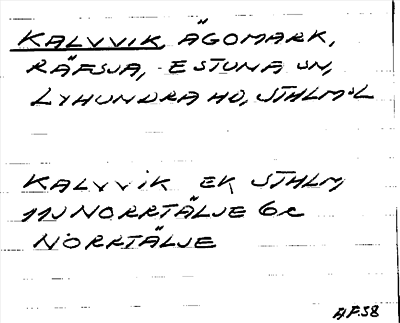 KALVVIK, ÄGOMARK,
RÄFSJA, ESTUNA SN,
LYHUNDRA HD, STHLMS L
KALVVIK EK STHLM
11J NORRTÄLJE 6c
NORRTÄLJE
A.F.58